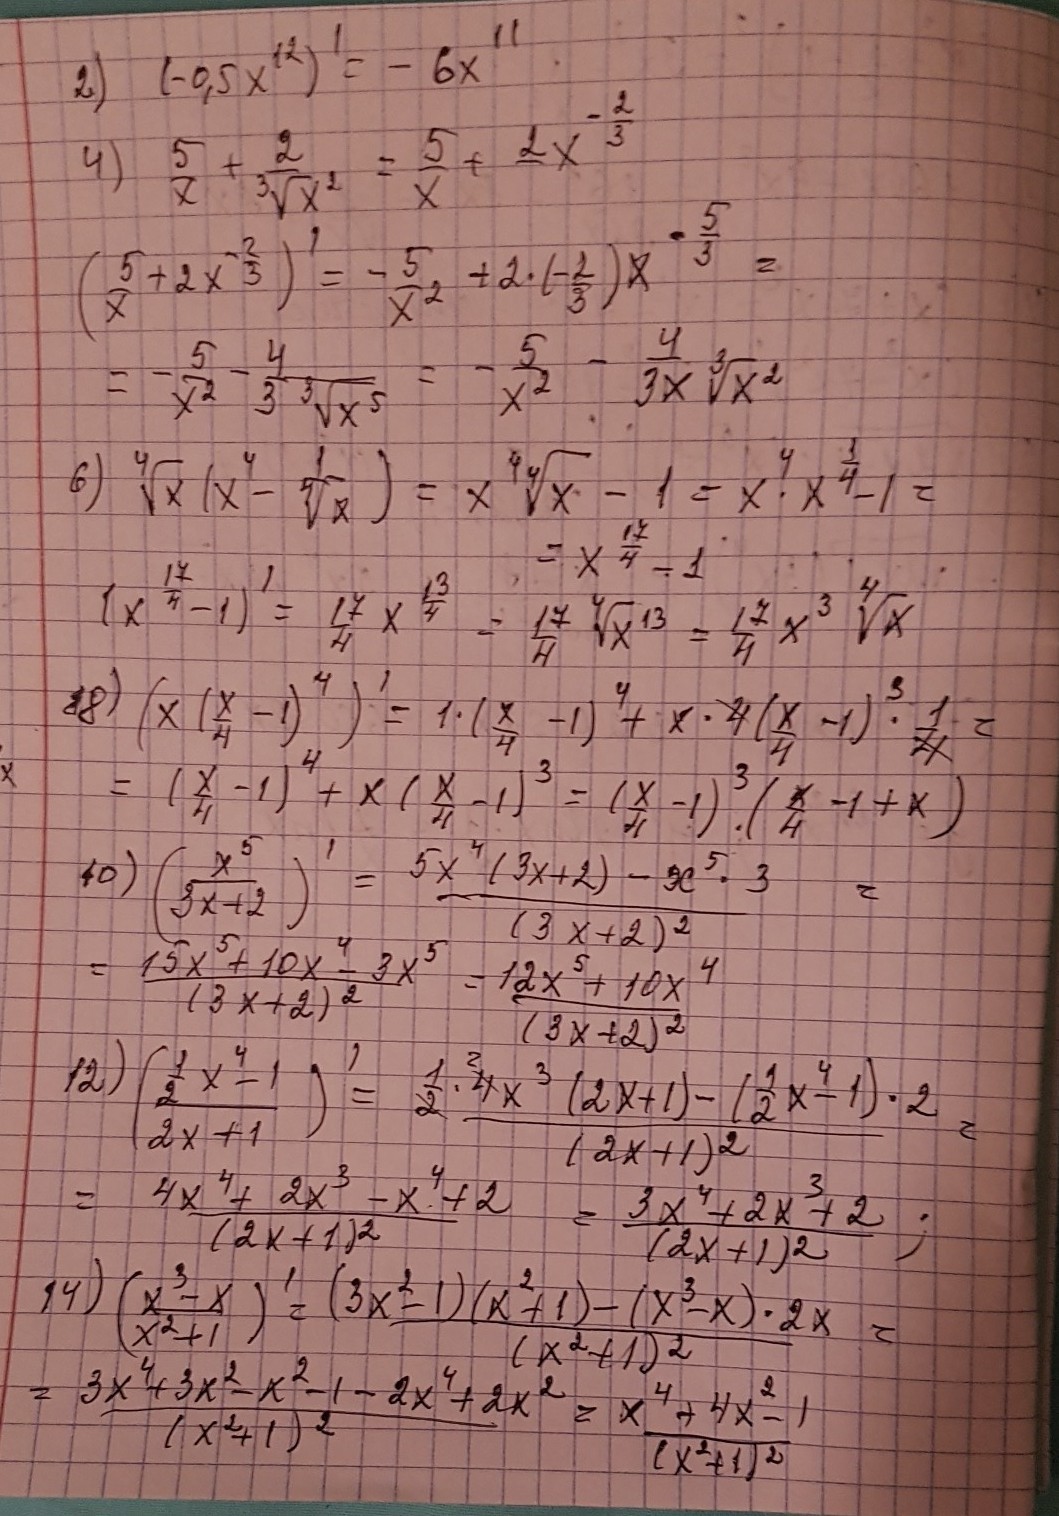 2) (-0,5x¹²)' = - 6x¹¹
4) 5/x + 2/∛x² = 5/x + 2x^(-2/3)
(5/x + 2x^(-2/3))' = - 5/x² + 2·(-2/3)x^(-5/3) =
= - 5/x² - 4/(3∛x⁵) = - 5/x² - 4/(3x∛x²)
6) ∜x (x⁴ - 1/∜x) = x⁴∜x - 1 = x⁴·x^(1/4) - 1 =
= x^(17/4) - 1
(x^(17/4) - 1)' = 17/4 x^(13/4) = 17/4 ∜x¹³ = 17/4 x³ ∜x
8) (x(x/4 - 1)⁴)' = 1·(x/4 - 1)⁴ + x·4(x/4 - 1)³·1/4 =
= (x/4 - 1)⁴ + x(x/4 - 1)³ = (x/4 - 1)³·(x/4 - 1 + x)
10) (x⁵/(3x+2))' = (5x⁴(3x+2) - x⁵·3)/(3x+2)² =
= (15x⁵ + 10x⁴ - 3x⁵)/(3x+2)² = (12x⁵ + 10x⁴)/(3x+2)²
12) ((1/2 x⁴ - 1)/(2x+1))' = (1/2·4x³(2x+1) - (1/2 x⁴ - 1)·2)/(2x+1)² =
= (4x⁴ + 2x³ - x⁴ + 2)/(2x+1)² = (3x⁴ + 2x³ + 2)/(2x+1)² ;
14) ((x³ - x)/(x²+1))' = ((3x² - 1)(x²+1) - (x³ - x)·2x)/(x²+1)² =
= (3x⁴ + 3x² - x² - 1 - 2x⁴ + 2x²)/(x²+1)² = (x⁴ + 4x² - 1)/(x²+1)²